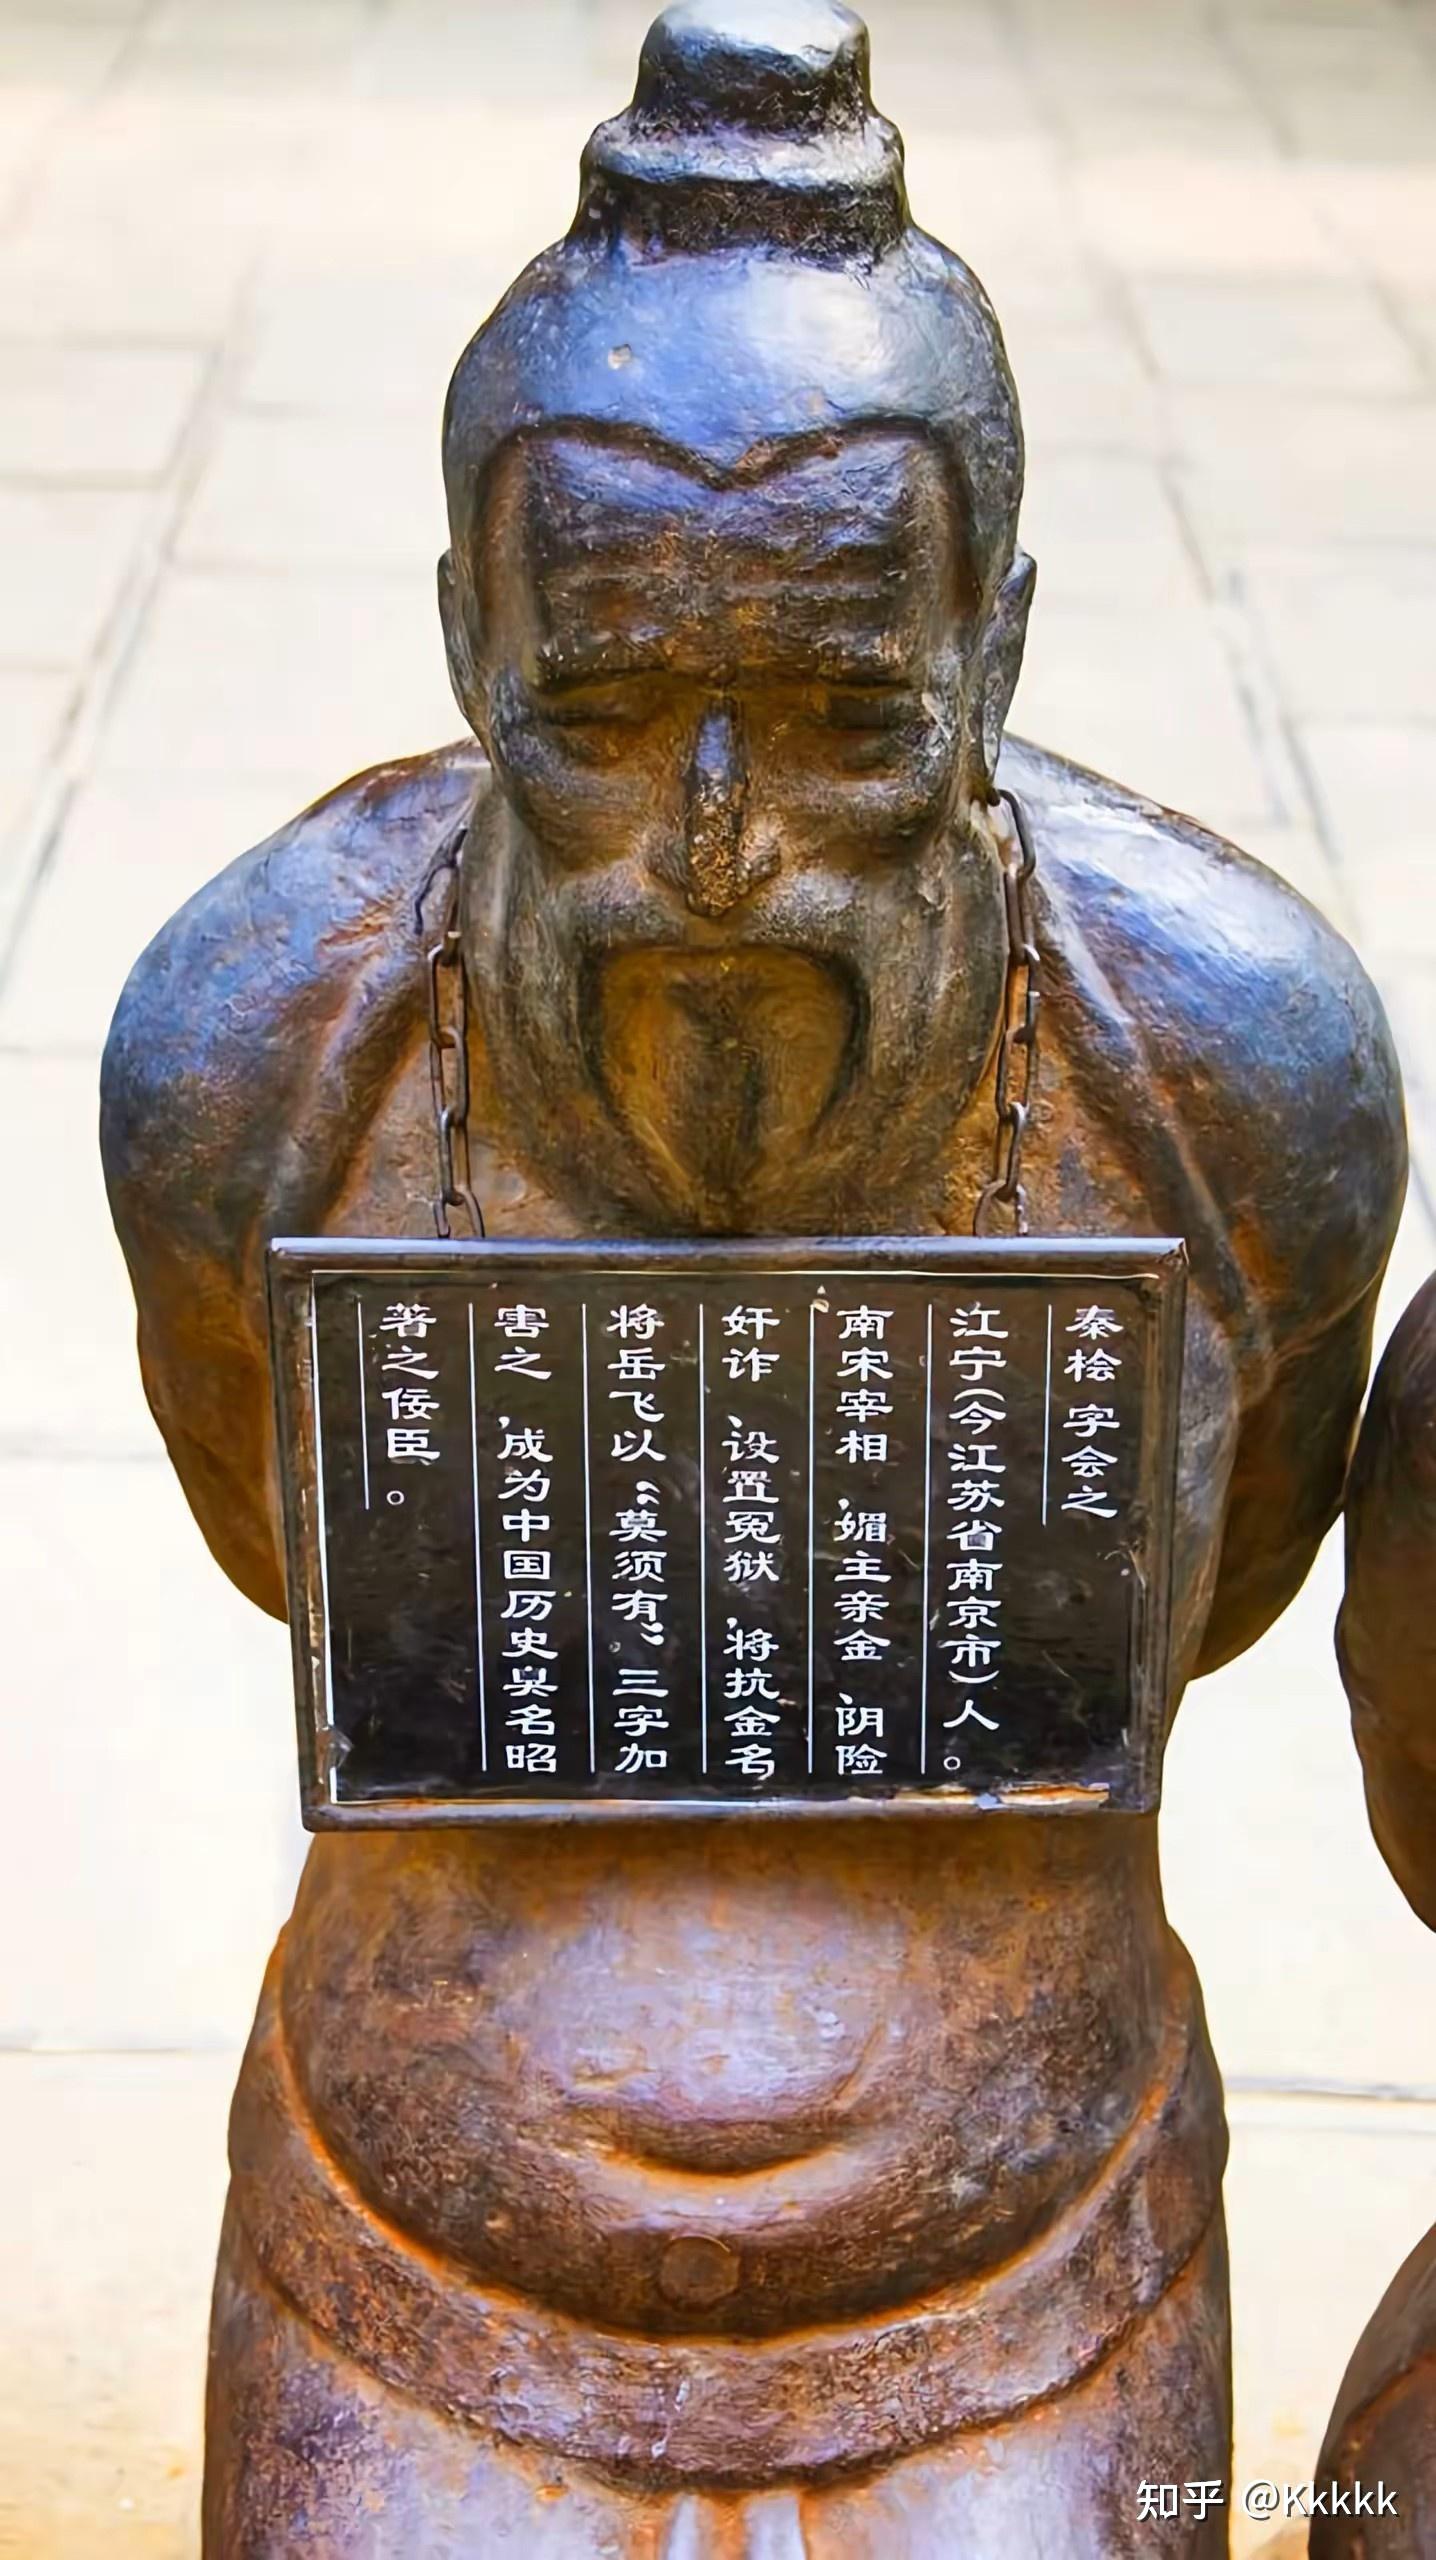 秦桧 字会之
江宁(今江苏省南京市)人。
南宋宰相、媚主亲金、阴险
奸诈、设置冤狱,将抗金名
将岳飞以“莫须有”三字加
害之,成为中国历史臭名昭
著之佞臣。
知乎 @Kkkkk